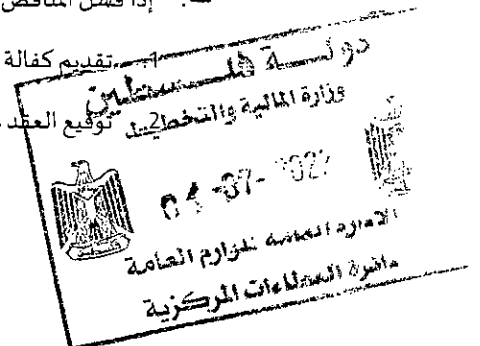 إذا فشل المناقص
1. تقديم كفالة
2. توقيع العقد
دولة فلسطين
وزارة المالية والتخطيط
الادارة العامة للوازم العامة
دائرة العطاءات المركزية